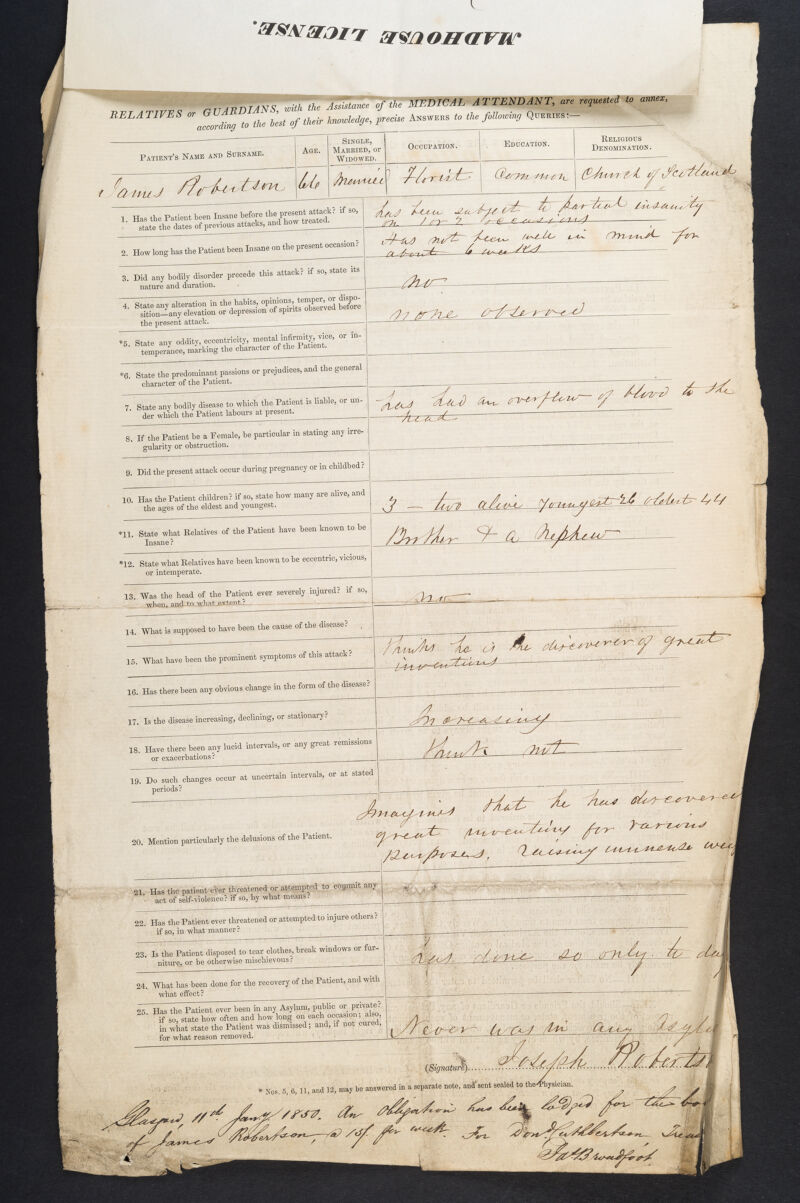 MADHOUSE LICENSE.
RELATIVES or GUARDIANS, with the Assistance of the MEDICAL ATTENDANT, are requested to annex,
according to the best of their knowledge, precise ANSWERS to the following QUERIES:—
PATIENT'S NAME AND SURNAME. AGE. SINGLE, MARRIED, OR WIDOWED. OCCUPATION. EDUCATION. RELIGIOUS DENOMINATION.
James Robertson 66 Married Florist Common Church of Scotland
1. Has the Patient been Insane before the present attack? if so,
state the dates of previous attacks, and how treated.
has been subject to partial insanity
on 1 or 2 occasions
2. How long has the Patient been Insane on the present occasion?
Has not been well in mind for
about 6 weeks
3. Did any bodily disorder precede this attack? if so, state its
nature and duration.
no
4. State any alteration in the habits, opinions, temper, or dispo-
sition—any elevation or depression of spirits observed before
the present attack.
none observed
*5. State any oddity, eccentricity, mental infirmity, vice, or in-
temperance, marking the character of the Patient.
*6. State the predominant passions or prejudices, and the general
character of the Patient.
7. State any bodily disease to which the Patient is liable, or un-
der which the Patient labours at present.
has had an overflow of blood to the
head
8. If the Patient be a Female, be particular in stating any irre-
gularity or obstruction.
9. Did the present attack occur during pregnancy or in childbed?
10. Has the Patient children? if so, state how many are alive, and
the ages of the eldest and youngest.
3 — two alive youngest 26 oldest 44
*11. State what Relatives of the Patient have been known to be
Insane?
Brother & a Nephew
*12. State what Relatives have been known to be eccentric, vicious,
or intemperate.
13. Was the head of the Patient ever severely injured? if so,
when, and to what extent?
no
14. What is supposed to have been the cause of the disease?
15. What have been the prominent symptoms of this attack?
thinks he is the discoverer of great
inventions
16. Has there been any obvious change in the form of the disease?
17. Is the disease increasing, declining, or stationary?
Increasing
18. Have there been any lucid intervals, or any great remissions
or exacerbations?
think not
19. Do such changes occur at uncertain intervals, or at stated
periods?
20. Mention particularly the delusions of the Patient.
Imagines that he has discovered
great inventions for various
purposes, raising immense
21. Has the patient ever threatened or attempted to commit any
act of self-violence? if so, by what means?
22. Has the Patient ever threatened or attempted to injure others?
if so, in what manner?
23. Is the Patient disposed to tear clothes, break windows or fur-
niture, or be otherwise mischievous?
has done so only to day
24. What has been done for the recovery of the Patient, and with
what effect?
25. Has the Patient ever been in any Asylum, public or private?
if so, state how often and how long on each occasion; also,
in what state the Patient was dismissed; and, if not cured,
for what reason removed.
Never was in any Asylu
(Signature) Joseph Roberts
* Nos. 5, 6, 11, and 12, may be answered in a separate note, and sent sealed to the Physician.
Glasgow, 11th Jany 1850. An Obligation has been lodged for the bo
of James Robertson, a 15/ per week. For Dond Cuthbertson, Treas
Jas Broadfoot